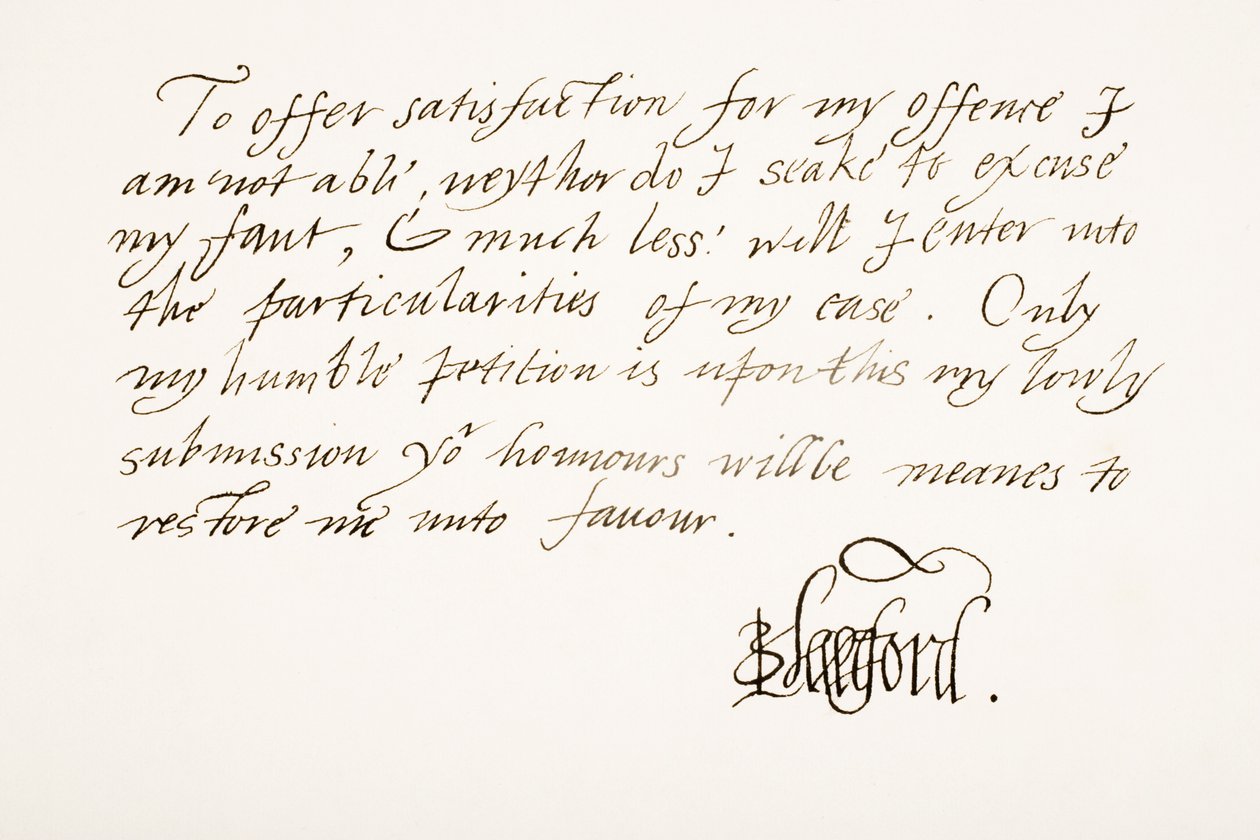 To offer satisfaction for my offence I
am not able, neythor do I seake to excuse
my faut, & much less: will I enter into
the particularities of my case. Only
my humble petition is upon this my lowly
submission yor honnours will be meanes to
restore me unto fauour.